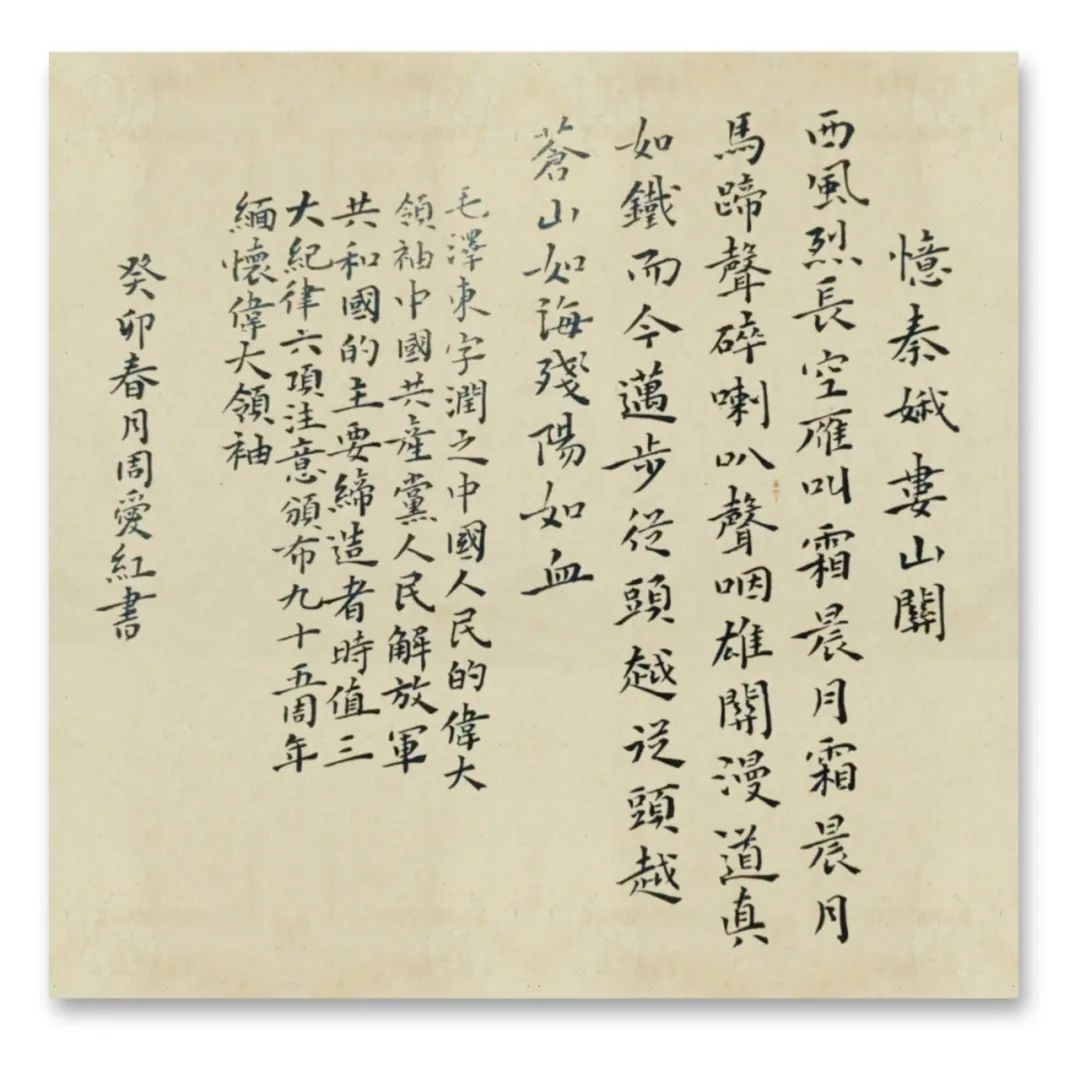 憶秦娥婁山關
西風烈長空雁叫霜晨月霜晨月
馬蹄聲碎喇叭聲咽雄關漫道真
如鐵而今邁步從頭越從頭越
蒼山如海殘陽如血
毛澤東字潤之中國人民的偉大
領袖中國共產黨人民解放軍
共和國的主要締造者時值三
大紀律六項注意頒布九十五周年
緬懷偉大領袖
癸卯春月周愛紅書